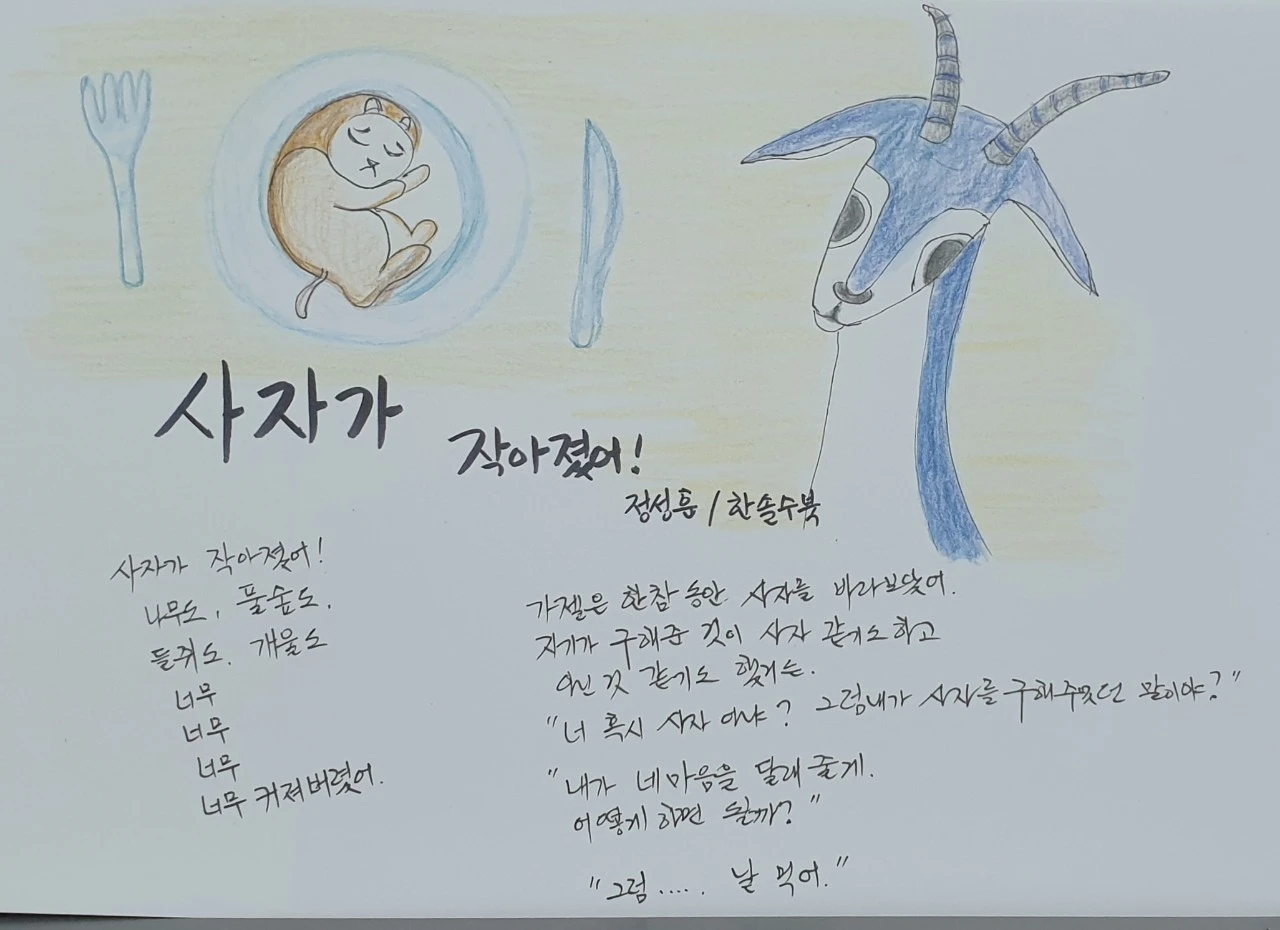 사자가
작아졌어!
정성훈 / 한솔수북
사자가 작아졌어!
나무도, 풀숲도,
들쥐도, 개울도
너무
너무
너무
너무 커져버렸어.
가젤은 한참 동안 사자를 바라보았어.
자기가 구해준 것이 사자 같기도하고
아닌 것 같기도 했거든.
"너 혹시 사자 아냐? 그럼내가 사자를 구해주었던 말이야?"
"내가 네 마음을 달래 줄게.
어떻게 하면 될까?"
"그럼..... 날 먹어."